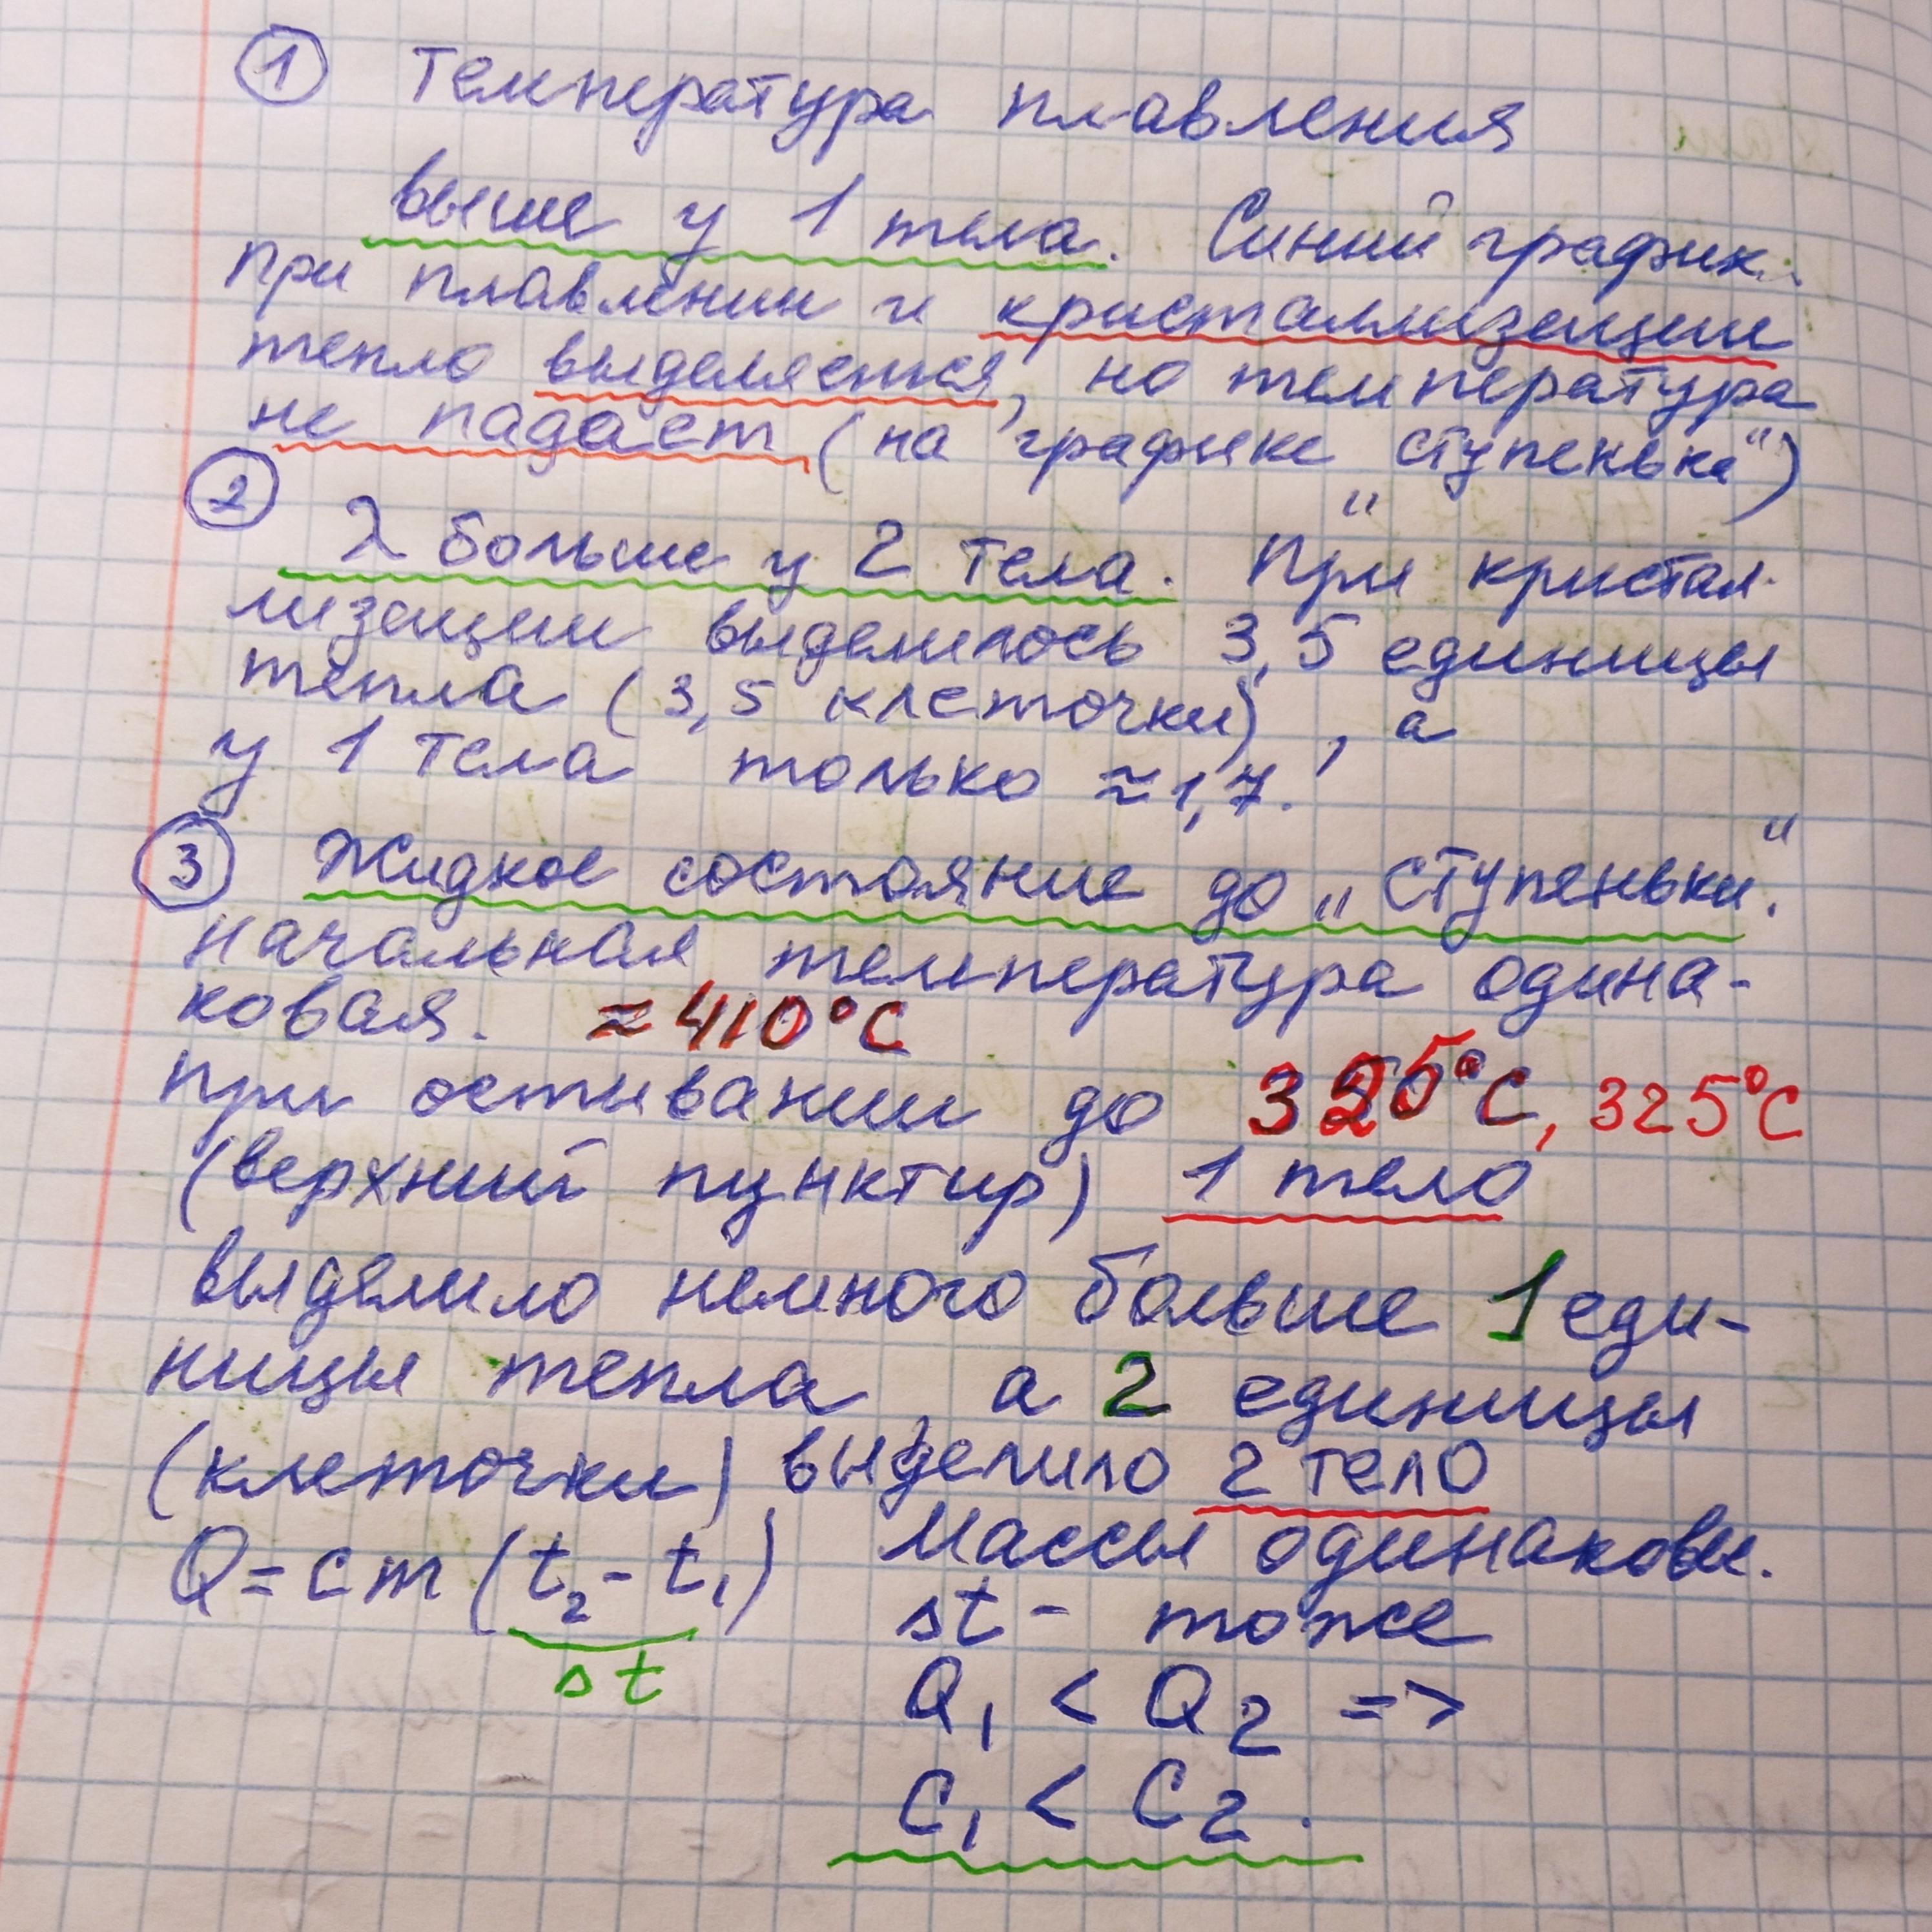 ① Температура плавления
выше у 1 тела. Синий график.
При плавлении и кристаллизации
тепло выделяется, но температура
не падает (на графике „ступенька“)
② λ больше у 2 тела. При кристал-
лизации выделилось 3,5 единицы
тепла (3,5 клеточки), а
у 1 тела только ≈1,7.
③ Жидкое состояние до „ступеньки“.
Начальная температура одина-
ковая. ≈410°C
При остывании до 325°C, 325°C
(верхний пунктир) 1 тело
выделило немного больше 1 еди-
ницы тепла, а 2 единицы
(клеточки) выделило 2 тело
Q=cm(t₂-t₁) Массы одинаковы.
Δt Δt - тоже
Q₁ < Q₂ =>
C₁ < C₂.